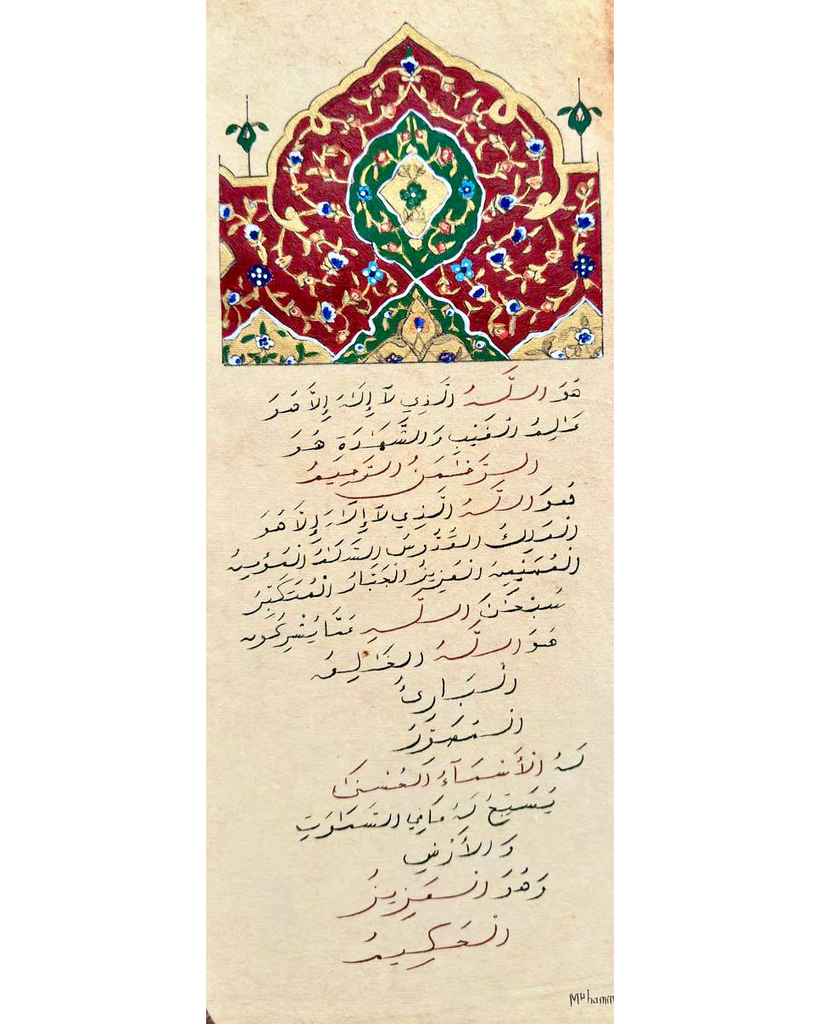 هُوَ اللَّهُ الَّذِي لَآ إِلَٰهَ إِلَّا هُوَ
عَٰلِمُ الْغَيْبِ وَالشَّهَٰدَةِ هُوَ
الرَّحْمَٰنُ الرَّحِيمُ
هُوَ اللَّهُ الَّذِي لَآ إِلَٰهَ إِلَّا هُوَ
الْمَلِكُ الْقُدُّوسُ السَّلَٰمُ الْمُؤْمِنُ
الْمُهَيْمِنُ الْعَزِيزُ الْجَبَّارُ الْمُتَكَبِّرُ
سُبْحَٰنَ اللَّهِ عَمَّا يُشْرِكُونَ
هُوَ اللَّهُ الْخَٰلِقُ
الْبَارِئُ
الْمُصَوِّرُ
لَهُ الْأَسْمَآءُ الْحُسْنَىٰ
يُسَبِّحُ لَهُ مَا فِي السَّمَٰوَٰتِ
وَالْأَرْضِ
وَهُوَ الْعَزِيزُ
الْحَكِيمُ
Muhamm